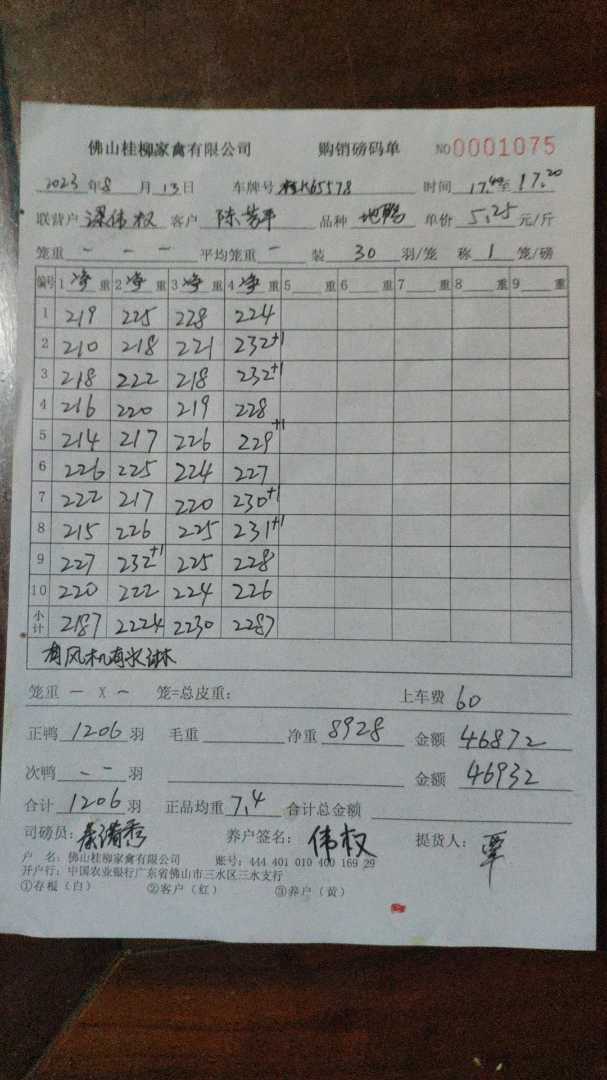 佛山桂柳家禽有限公司 购销磅码单 NO0001075
2023年8月13日 车牌号 桂K65578 时间 17.40至17.20
联营户 梁伟权 客户 陈 平 品种 地鸭 单价 5.25 元/斤
笼重 - - - 平均笼重 - 装 30 羽/笼 称 1 笼/磅
编号 1 净 重 2 净 重 3 净 重 4 净 重 5 重 6 重 7 重 8 重 9 重
1 219 225 228 224
2 210 218 221 232+1
3 218 222 218 232+1
4 216 220 219 228
5 214 217 226 229+1
6 226 225 224 227
7 222 217 220 230+1
8 215 226 225 231+1
9 227 232+1 225 228
10 220 222 224 226
小计 2187 2224 2230 2287
有风机有水淋
笼重 - X - 笼=总皮重: 上车费 60
正鸭 1206 羽 毛重 净重 8928 金额 46872
次鸭 - - 羽 金额 46932
合计 1206 羽 正品均重 7.4 合计总金额
司磅员: 养户签名: 伟权 提货人: 覃
户 名: 佛山桂柳家禽有限公司 账号: 444 401 010 400 169 29
开户行: 中国农业银行广东省佛山市三水区三水支行
①存根(白) ②客户(红) ③养户(黄)